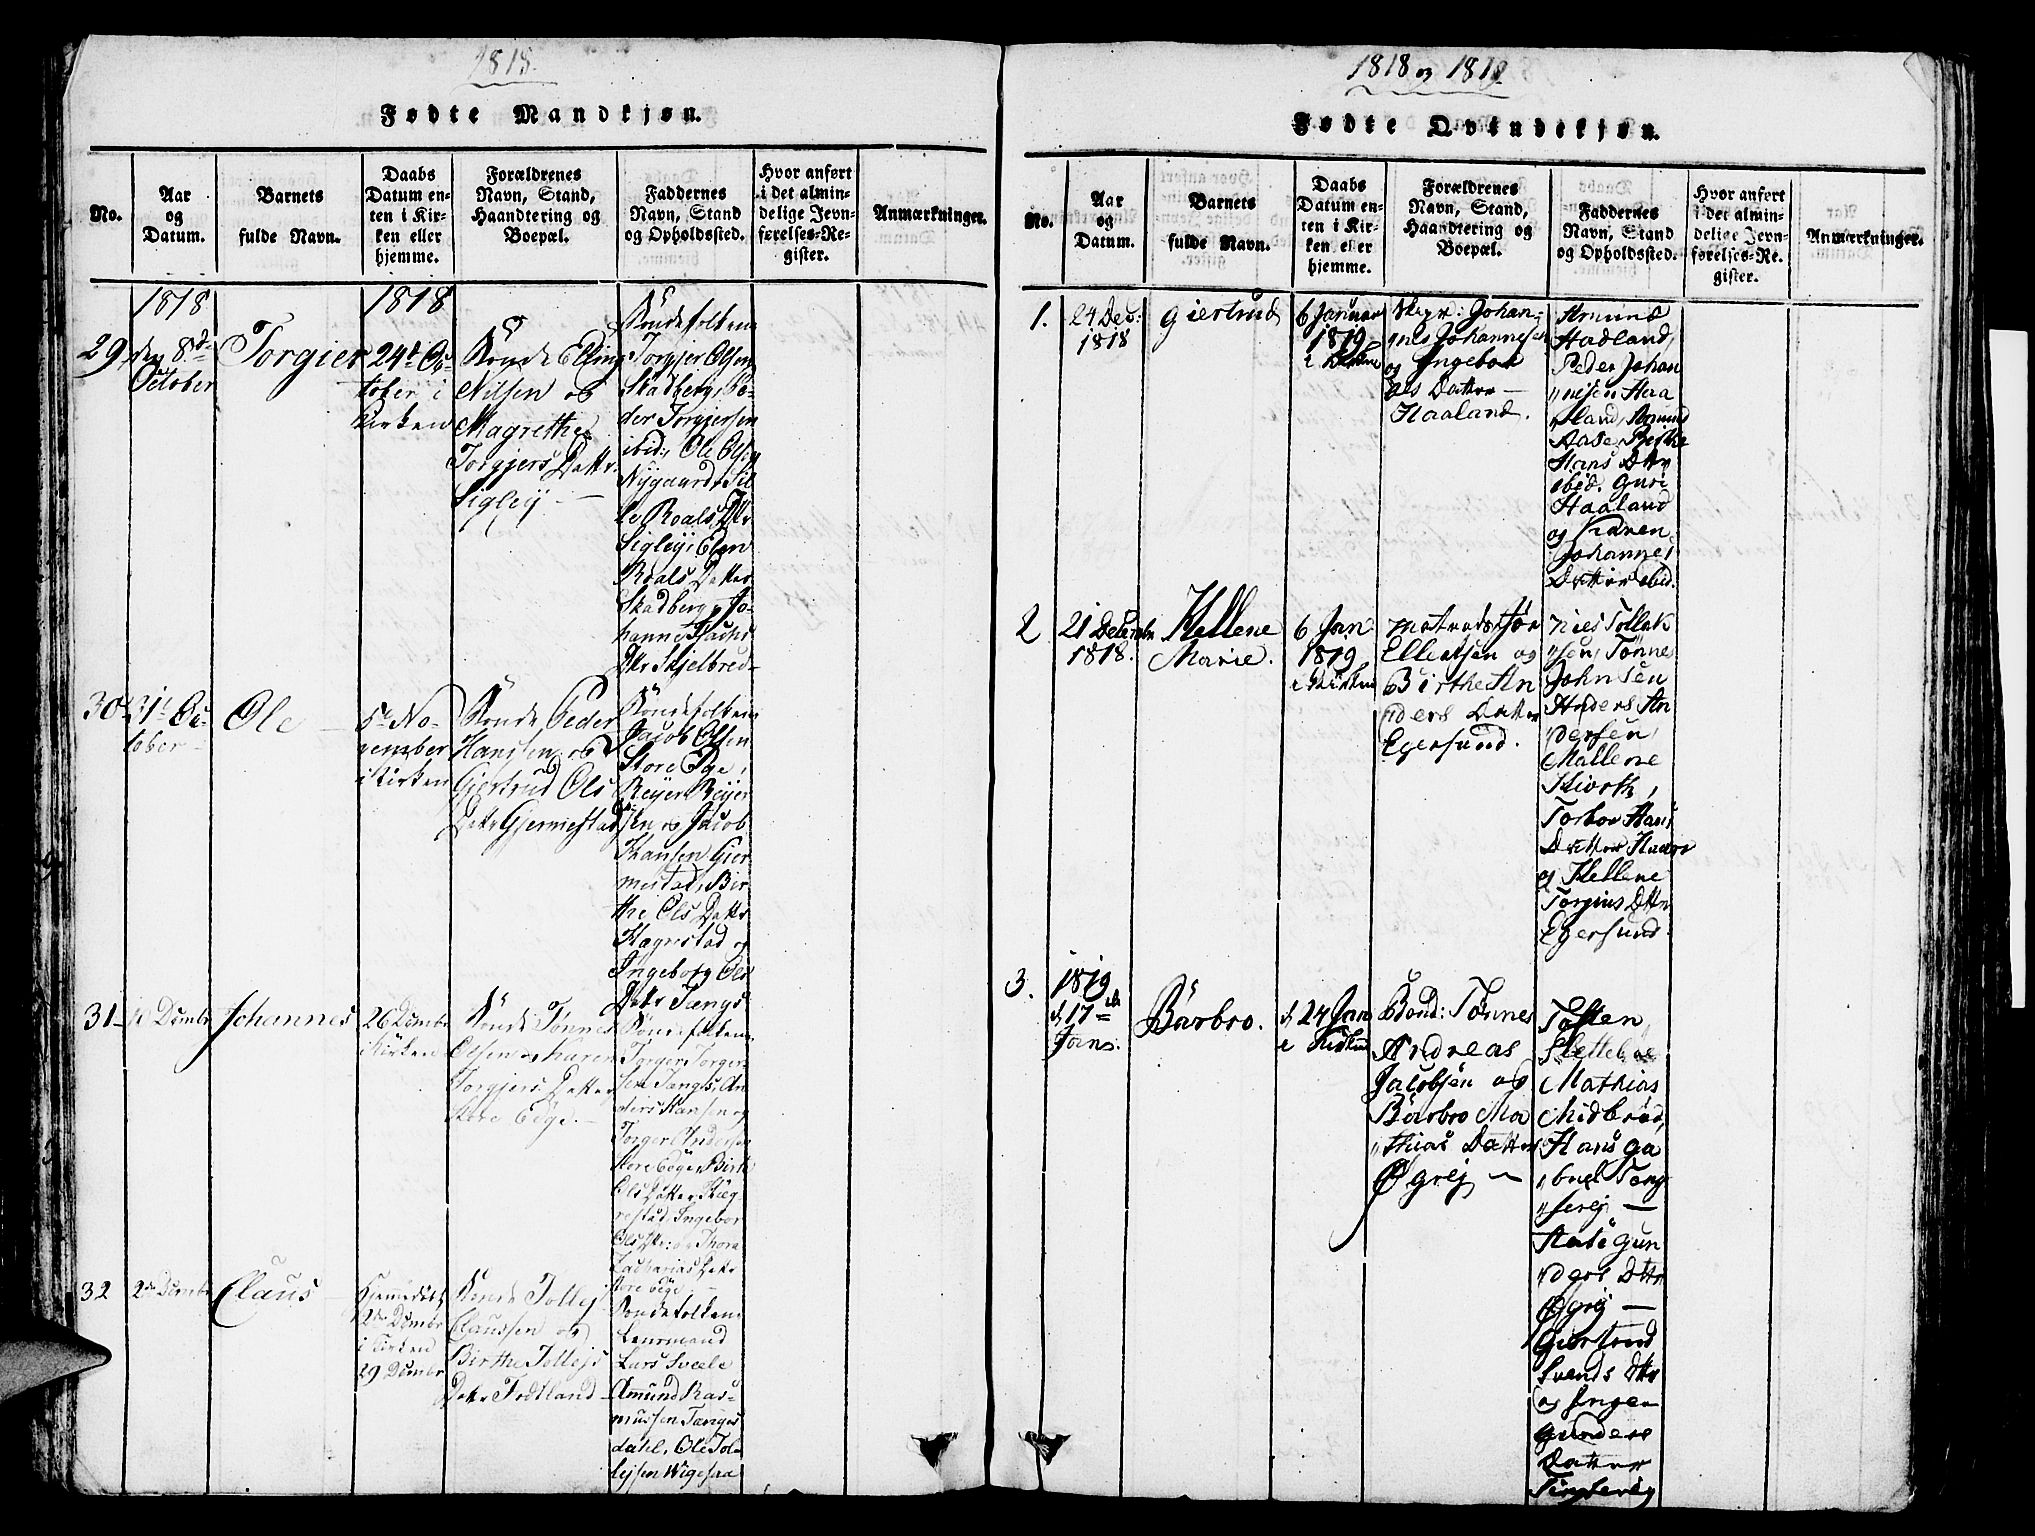 1818.
Fødte Mandkjøn.
No.
Aar
og
Datum.
Barnets
fulde Navn.
Daabs
Datum en-
ten i Kir-
ken eller
hjemme.
Forældrenes
Navn, Stand,
Haandtering og
Boepæl.
Faddernes
Navn, Stand
og Opholdssted.
Hvor anført
i det almin-
delige Jevn-
førelses-Re-
gister.
Anmærkninger.
1818
29.
den 8de
October
Torgier
1818
24de Oc-
tober i
Kirken
Bonde Elling
Nilsen og
Magrethe
Torgjers Dattr.
Sigley
Bondefolkene
Torgier Olsen
Skadberg, Pe-
der Torgjersen
ibid:, Ole Olsen
Nygaard, Sil-
le Roals Dtr
Sigley, Elen
Roals Datter
Skadberg, Jo-
hanne Isachs
Dtr Skjelbred
30
31te Oc-
tober
Ole
5te No-
vember
i Kirken
Bonde Peder
Hanssen og
Giertrud Ols
Dattr Gjermestad
Bondefolkene
Jacob Olsen
Store Ege,
Reyer Reyer-
sen og Jacob
Hansen Gier-
mestad, Bir-
the Ols Dattr
Hægrestad og
Ingeborg Ols
Dattr Tengs
31
Johannes
26 Dcmbr
i Kirken
Bonde Tønnes
Olsen og Karen
Torgjers Datter
Store Eége.
Bondefolkene
Torger Torger-
sen Tengs, An-
ders Hansen og
Torger Anderson
Store Eége, Birthe
Ols Datter Hæg-
restad, Ingebor
Ols Dtr: og Thora
Zacharias Dattr
Store Eége
32
2den Dcmbr
Claus
Hjemedøbt
2den Dcmbr
i Kirken
29 Dcmbr
Bonde Tollej
Claussen og
Birthe Tollejs
Dattr Todtland
Bondefolkene
Lensmand
Lars Svele
Amund Ras-
mussen Tenges
dahl, Ole Tol-
lejsen Wigesaa
1818 og 1819
Fødte Qvindekjøn.
No.
Aar
og
Datum.
Barnets
fulde Navn.
Daabs
Datum en-
ten i Kir-
ken eller
hjemme.
Forældrenes
Navn, Stand,
Haandtering og
Boepæl.
Faddernes
Navn, Stand
og Opholdssted.
Hvor anført
i det almin-
delige Jevn-
førelses-Re-
gister.
Anmærkninger.
1.
24 Dec:
1818
Giertrud
6 Januar
1819
i Kirken
Johan-
nes Johannesen
og Ingebor
Ols Datter
Haaland.
Amund
Hadland,
Peder Johan
nesen Haa
land, Amund
Aase, Birthe
Hans Dttr
ibid. Guri
Haaland
og Karen
Johannes
Datter ibid.
2
21 December
1818.
Hellene
Marie.
6 Jan
1819
i Kirken
Matrods Tør
Ellertsen og
Birthe An
ders Datter
Egersund.
Nies Tollak
sen, Tønnes
Johnsen
Anders An
dersen,
Mallene
Torbor Hans
Datter
og Hellene
Torgius Dttr
Egersund.
3.
1819
d. 17de
Jan.
Bärbro.
d. 24 Jan
i Kirken
Bond: Tønnes
Andreas
Jacobsen og
Bärbro Ma
thias Datter
Øgrej
Tosten
Slettebøe
Mathias
Midbrød,
Hans Ga
briel Teng
serej
Gun
ders Dttr
Øgrej
Giertrud
Svends Dttr
og Inger
Gunders
Datter
Tingserej